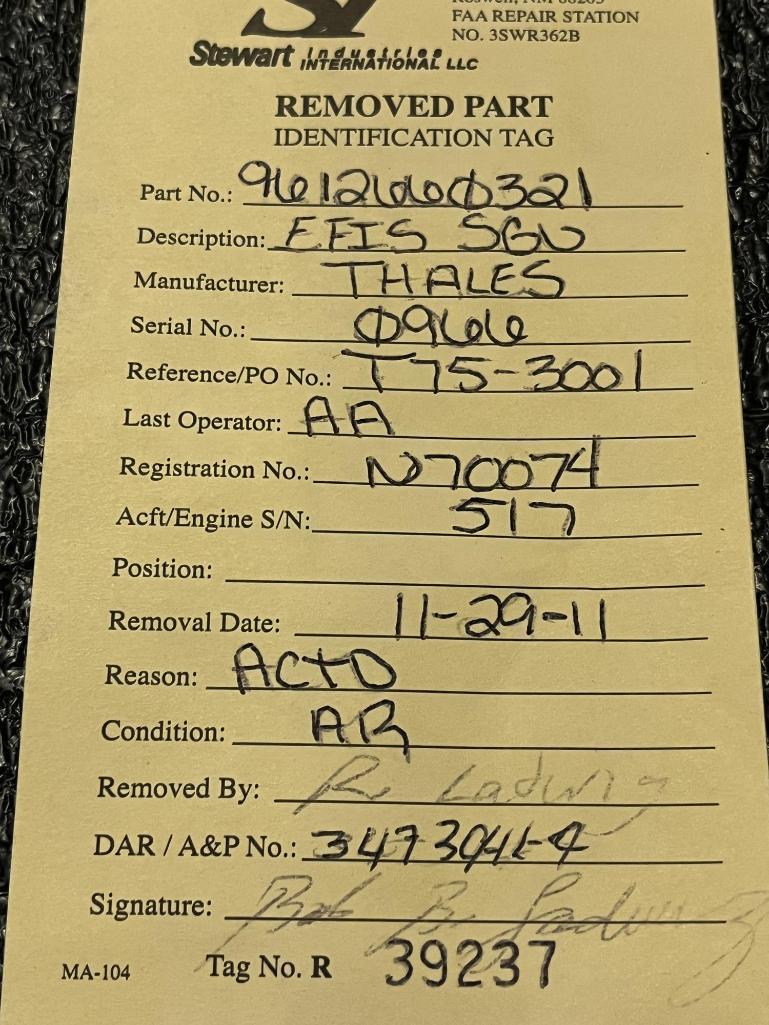 Roswell, NM 88203
FAA REPAIR STATION
NO. 3SWR362B
Stewart Industries
INTERNATIONAL LLC
REMOVED PART
IDENTIFICATION TAG
Part No.: 9612660321
Description: EFIS SGU
Manufacturer: THALES
Serial No.: 0966
Reference/PO No.: T75-3001
Last Operator: AA
Registration No.: N70074
Acft/Engine S/N: 517
Position:
Removal Date: 11-29-11
Reason: ACTD
Condition: AR
Removed By: R. Ladwig
DAR / A&P No.:
Signature: Bob B. Ladwig
MA-104 Tag No. R 39237